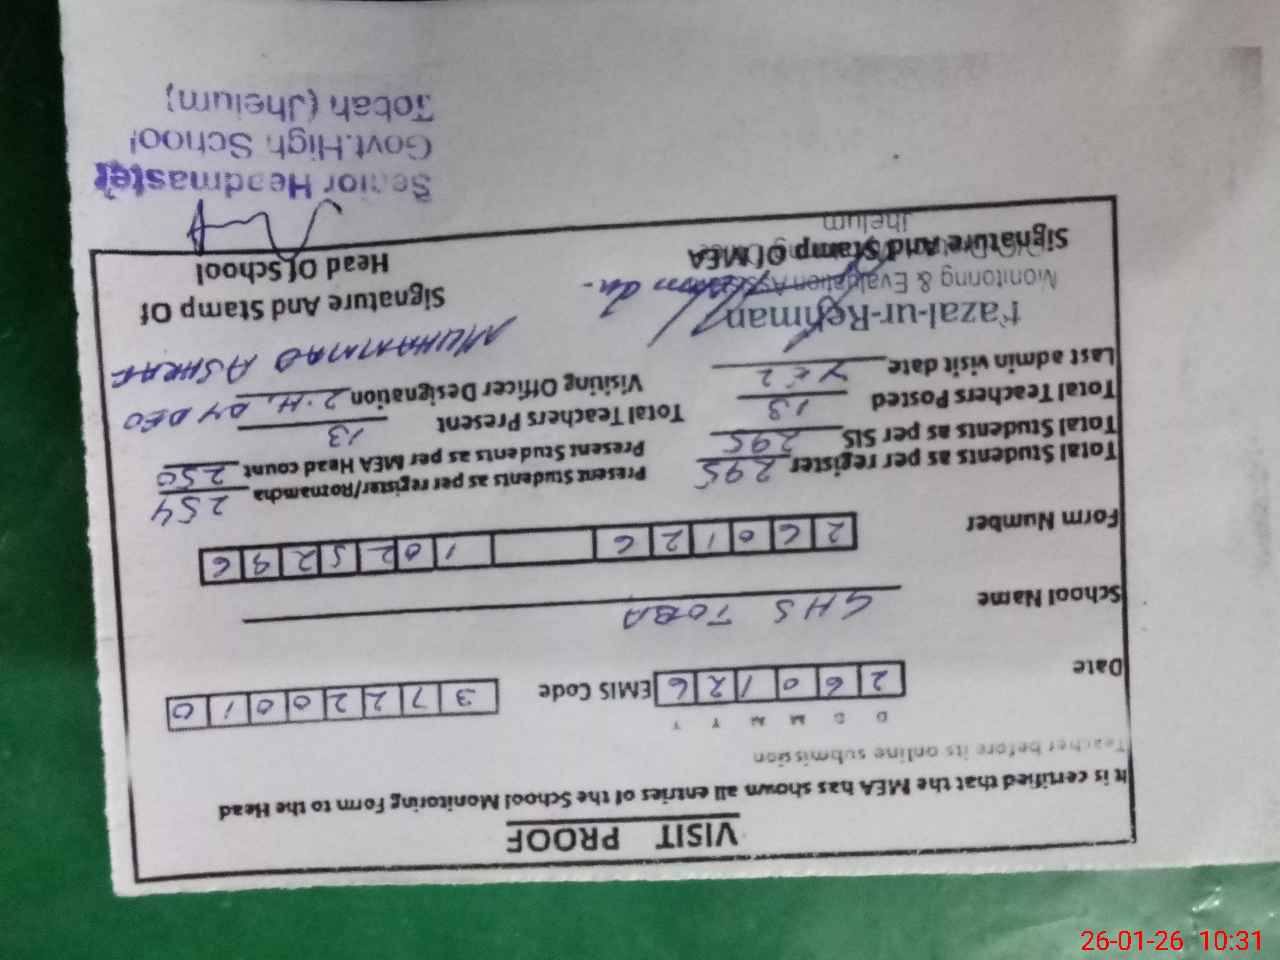 VISIT PROOF
It is certified that the MEA has shown all entries of the School Monitoring Form to the Head
Teacher before its online submission
D D M M Y Y
Date 2 6 0 1 2 6 EMIS Code 3 7 2 2 0 0 1 0
School Name GHS TOBA
Form Number 2 6 0 1 2 6 1 0 2 5 2 9 6
Total Students as per register 295 Present Students as per register/Roznamcha 254
Total Students as per SIS 295 Present Students as per MEA Head count 250
Total Teachers Posted 13 Total Teachers Present 13
Last admin visit date Visiting Officer Designation DY DEO
MUHAMMAD ASHRAF
Fazal-ur-Rehman
Monitoring & Evaluation Assistant
Signature And Stamp Of MEA
Jhelum
Signature And Stamp Of
Head Of School
Senior Headmaster
Govt.High School
Tobah (Jhelum)
26-01-26 10:31